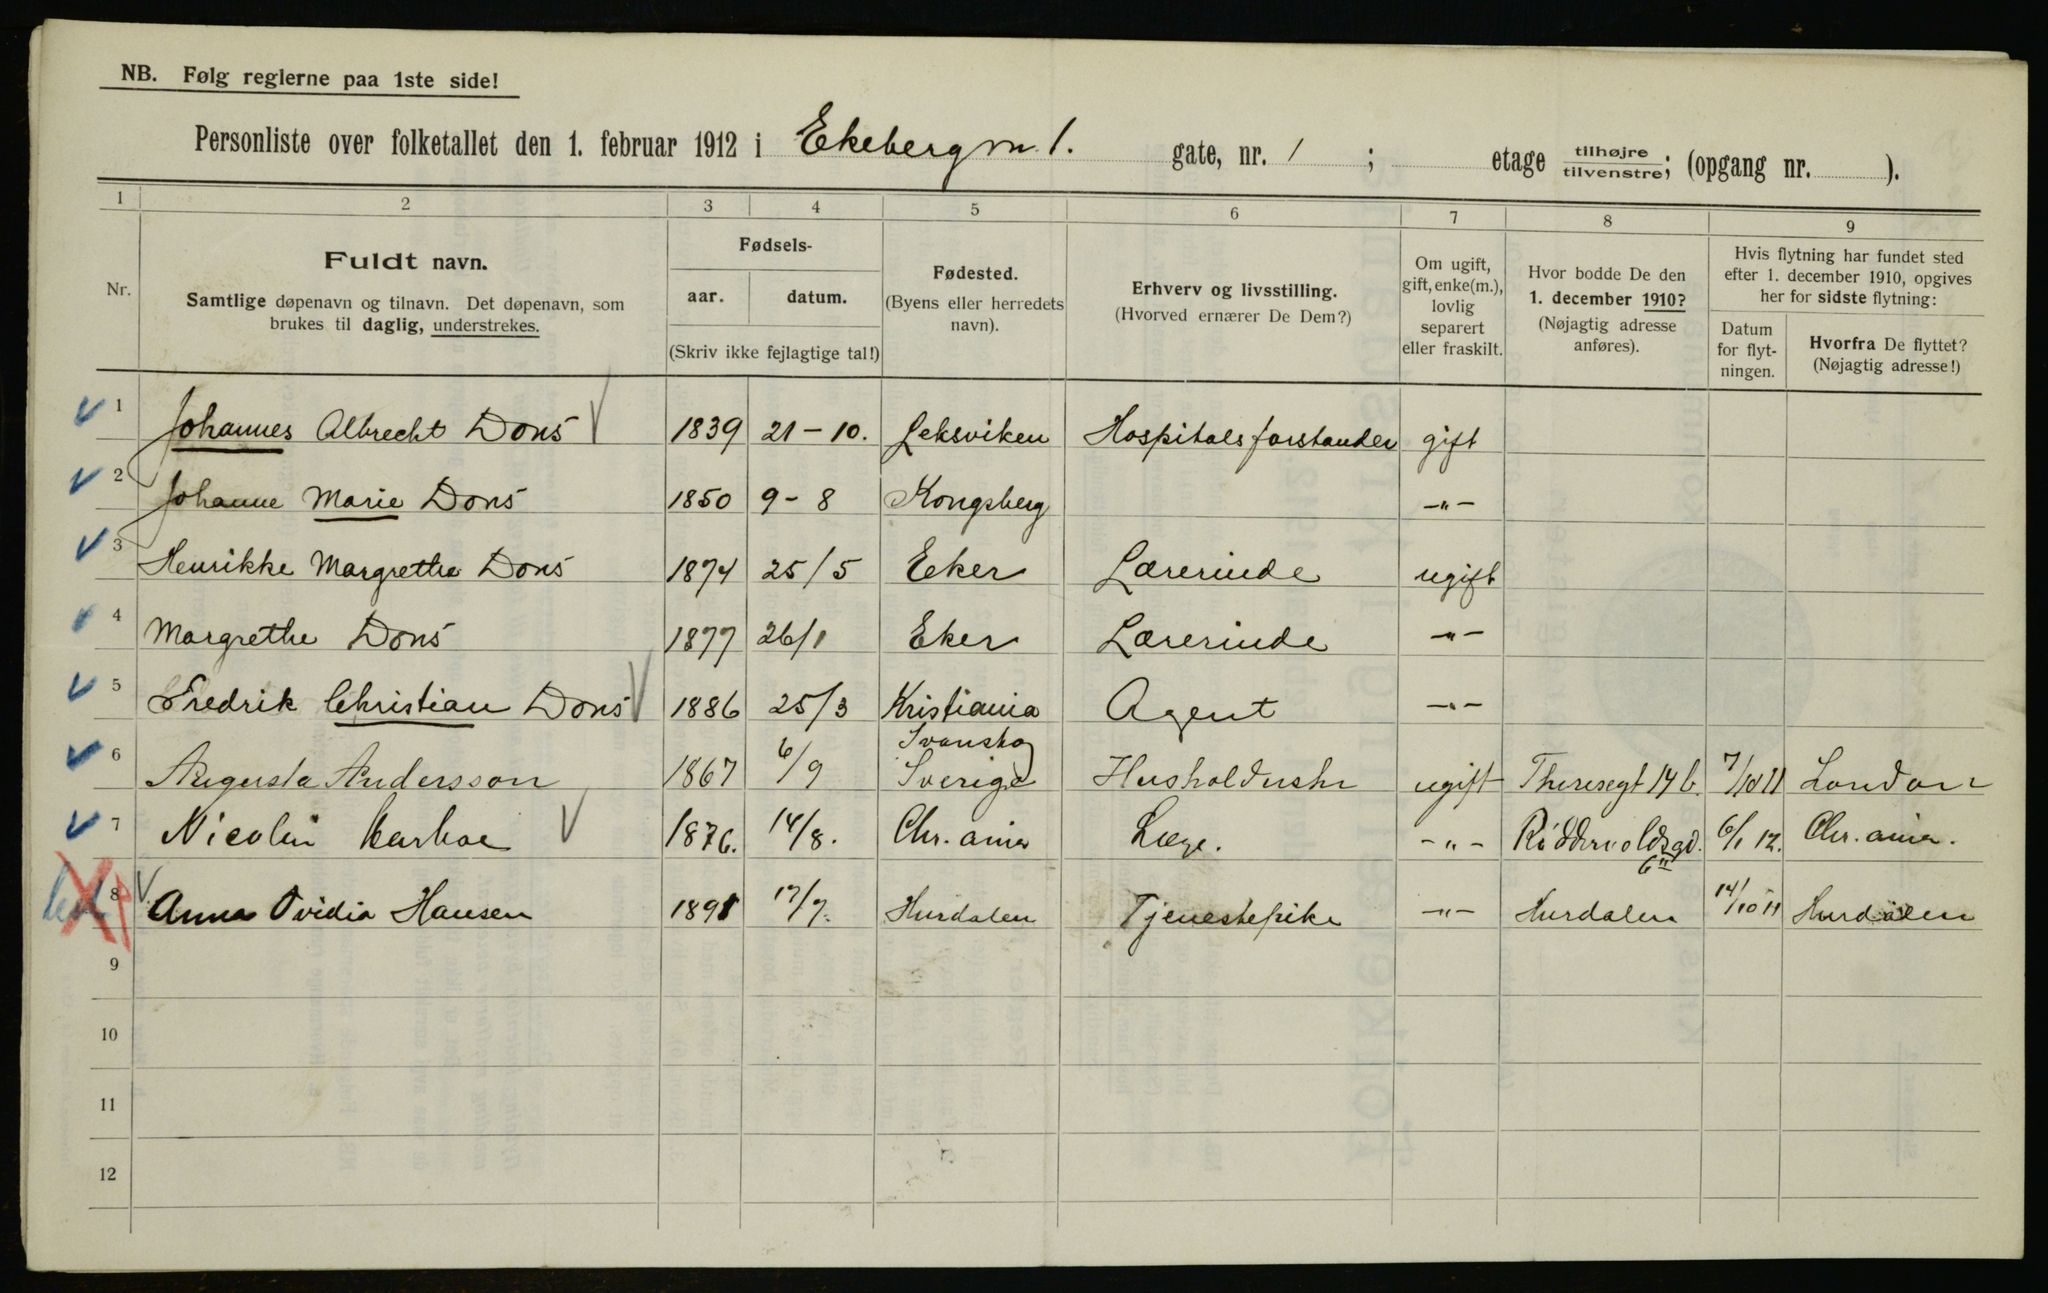 NB. Følg reglerne paa 1ste side!
Personliste over folketallet den 1. februar 1912 i Ekebergvn. 1. gate, nr. 1 ; etage tilhøjre/tilvenstre; (opgang nr. ).
1 2 3 4 5 6 7 8 9
Nr.
Fuldt navn.
Samtlige døpenavn og tilnavn. Det døpenavn, som
brukes til daglig, understrekes.
Fødsels-
aar. datum.
(Skriv ikke fejlagtige tal!)
Fødested.
(Byens eller herredets
navn).
Erhverv og livsstilling.
(Hvorved ernærer De Dem?)
Om ugift,
gift, enke(m.),
lovlig
separert
eller fraskilt.
Hvor bodde De den
1. december 1910?
(Nøjagtig adresse
anføres).
Hvis flytning har fundet sted
efter 1. december 1910, opgives
her for sidste flytning:
Datum
for flyt-
ningen.
Hvorfra De flyttet?
(Nøjagtig adresse!)
1 Johannes Albrecht Dons 1839 21-10. Leksviken Hospitalsforstander gift
2 Johanne Marie Dons 1850 9-8 Kongsberg -"-
3 Henrikke Margrethe Dons 1874 25/5 Eker Lærerinde ugift
4 Margrethe Dons 1877 26/1 Eker Lærerinde -"-
5 Fredrik Christian Dons 1886 25/3 Kristiania Agent -"-
6 Augusta Andersson 1867 6/9 Svanskog Sverige Husholdnskr ugift Theresegt 14 b. 7/10 11 London
7 Nicolin 1876. 14/8. Chr.ania Læge. -"- Riddervoldsgd. 6 6/1 12. Chr.ania.
8 Anna Ovidia Hansen 1891 17/7. Hurdalen Tjenestepike -"- Hurdalen 14/10 11 Hurdalen
9
10
11
12